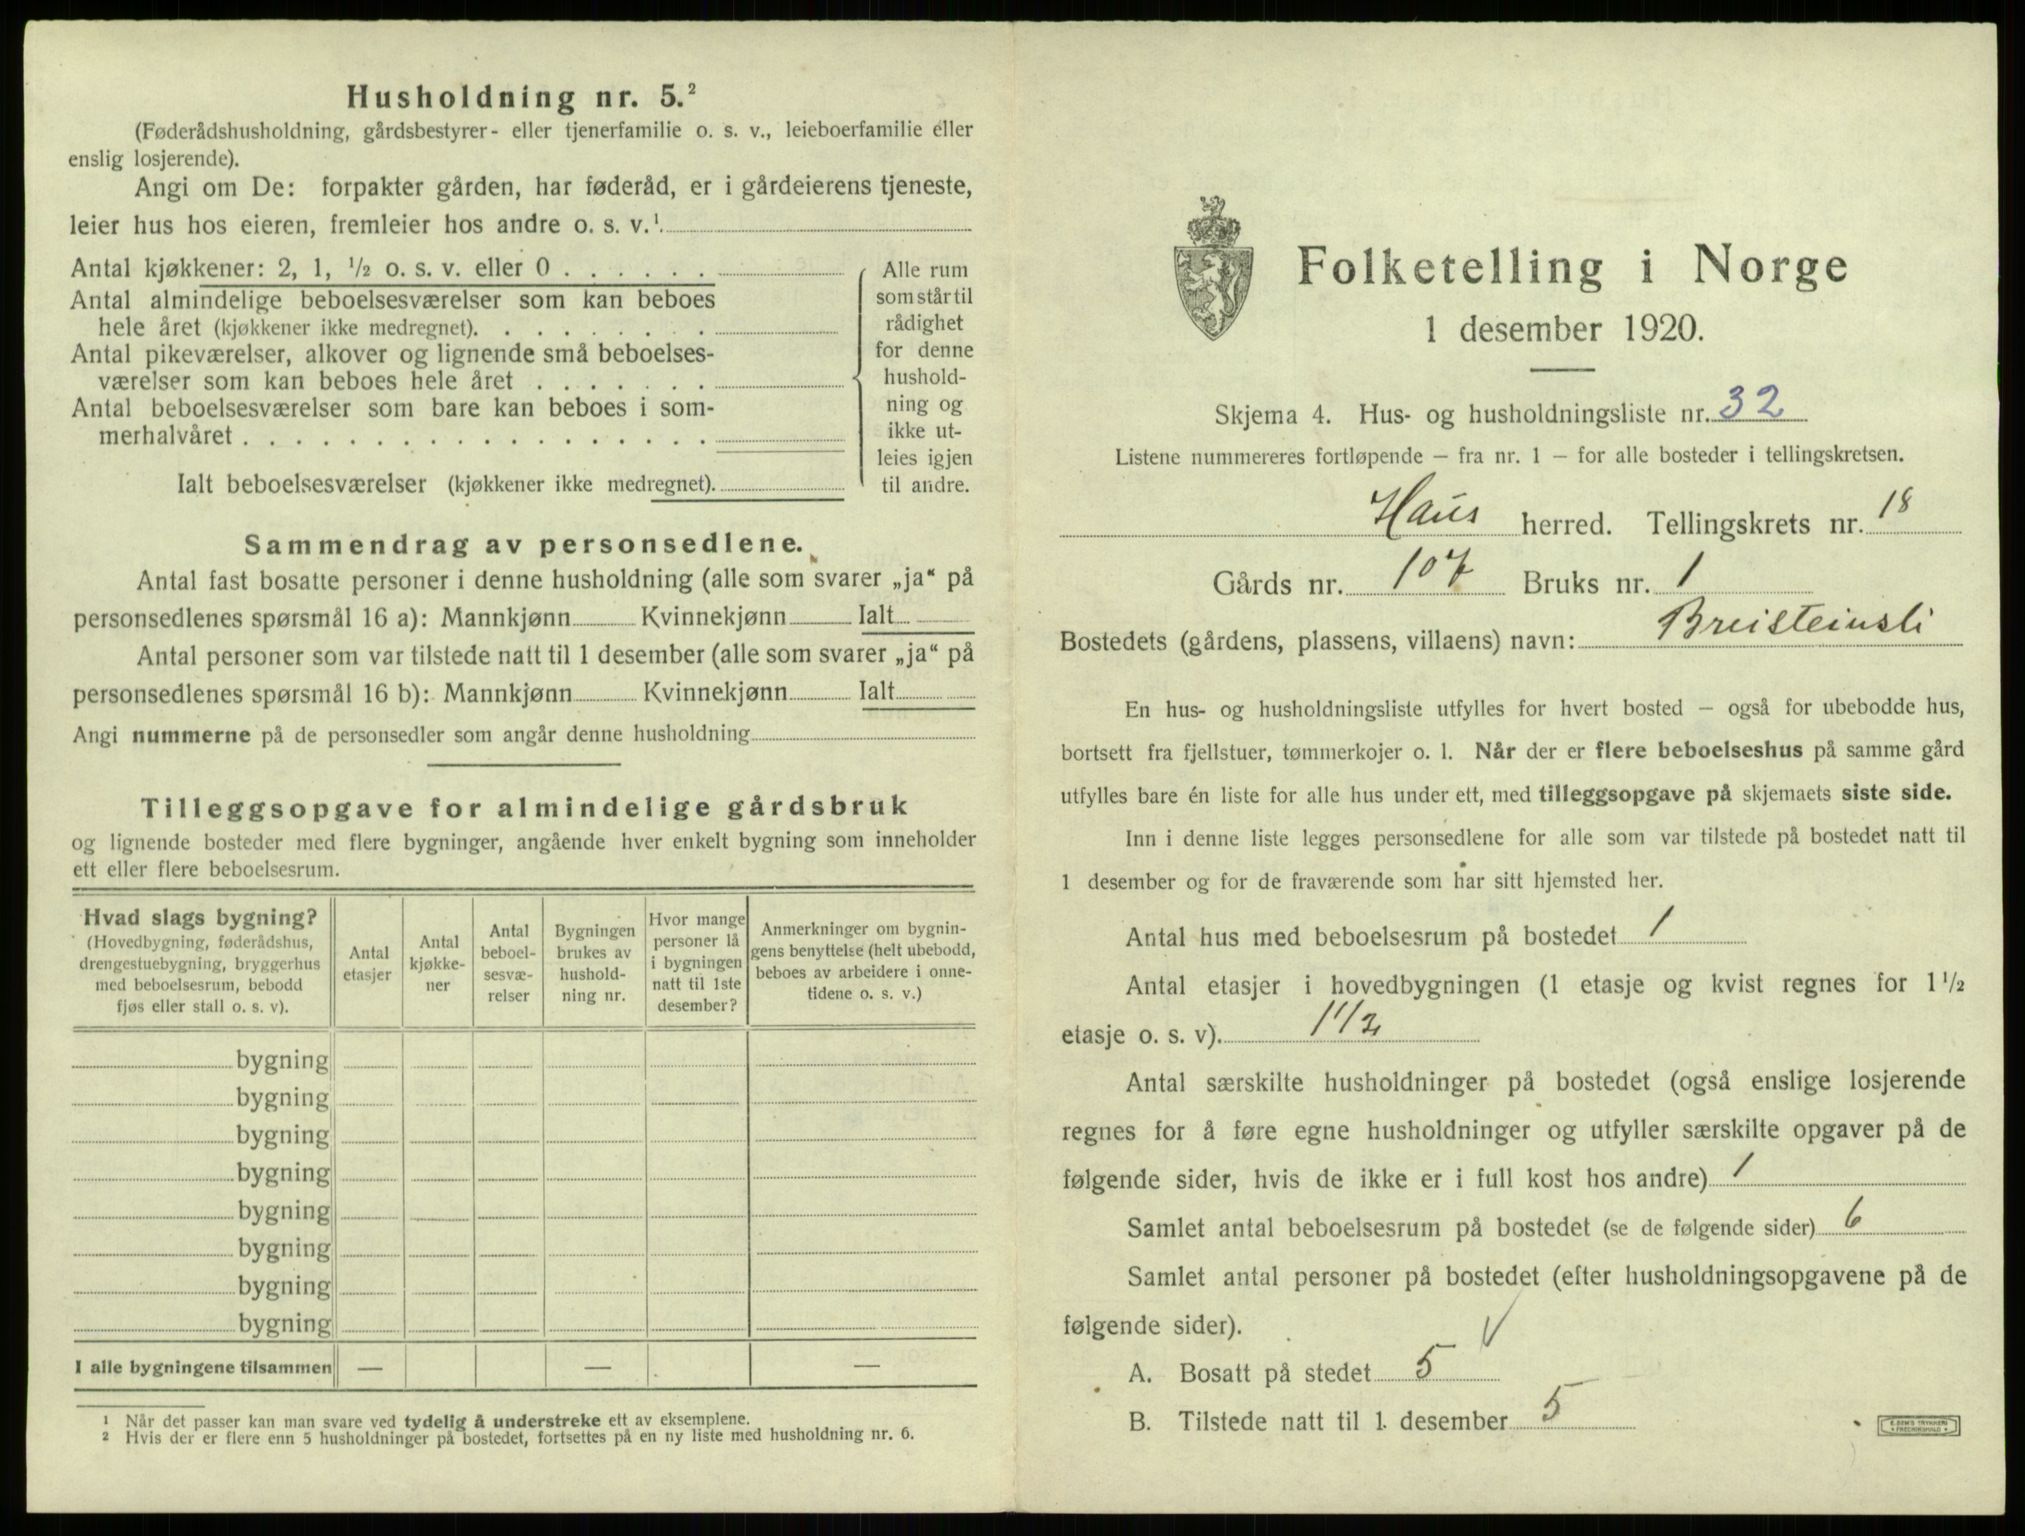 Husholdning nr. 5.²
(Føderådshusholdning, gårdsbestyrer- eller tjenerfamilie o. s. v., leieboerfamilie eller
enslig losjerende).
Angi om De: forpakter gården, har føderåd, er i gårdeierens tjeneste,
leier hus hos eieren, fremleier hos andre o. s. v.¹
Antal kjøkkener: 2, 1, ½ o. s. v. eller 0 . . . . . .
Antal almindelige beboelsesværelser som kan beboes
hele året (kjøkkener ikke medregnet). . . . . . . . .
Antal pikeværelser, alkover og lignende små beboelses-
værelser som kan beboes hele året . . . . . . .
Antal beboelsesværelser som bare kan beboes i som-
merhalvåret . . . . . . . . . . . . . . . . . .
Ialt beboelsesværelser (kjøkkener ikke medregnet).
Alle rum
som står til
rådighet
for denne
hushold-
ning og
ikke ut-
leies igjen
til andre.
Sammendrag av personsedlene.
Antal fast bosatte personer i denne husholdning (alle som svarer „ja“ på
personsedlenes spørsmål 16 a): Mannkjønn Kvinnekjønn Ialt
Antal personer som var tilstede natt til 1 desember (alle som svarer „ja“ på
personsedlenes spørsmål 16 b): Mannkjønn Kvinnekjønn Ialt
Angi nummerne på de personsedler som angår denne husholdning
Tilleggsopgave for almindelige gårdsbruk
og lignende bosteder med flere bygninger, angående hver enkelt bygning som inneholder
ett eller flere beboelsesrum.
Hvad slags bygning?
(Hovedbygning, føderådshus,
drengestuebygning, bryggerhus
med beboelsesrum, bebodd
fjøs eller stall o. s. v).
Antal
etasjer
Antal
kjøkke-
ner
Antal
beboel-
sesvæ-
relser
Bygningen
brukes av
hushold-
ning nr.
Hvor mange
personer lå
i bygningen
natt til 1ste
desember?
Anmerkninger om bygnin-
gens benyttelse (helt ubebodd,
beboes av arbeidere i onne-
tidene o. s. v.)
bygning
bygning
bygning
bygning
bygning
bygning
bygning
bygning
I alle bygningene tilsammen — — —
¹ Når det passer kan man svare ved tydelig å understreke ett av eksemplene.
² Hvis der er flere enn 5 husholdninger på bostedet, fortsettes på en ny liste med husholdning nr. 6.
Folketelling i Norge
1 desember 1920.
Skjema 4. Hus- og husholdningsliste nr. 32
Listene nummereres fortløpende – fra nr. 1 – for alle bosteder i tellingskretsen.
Haus herred. Tellingskrets nr. 18
Gårds nr. 107 Bruks nr. 1
Bostedets (gårdens, plassens, villaens) navn: Breisteinsli
En hus- og husholdningsliste utfylles for hvert bosted – også for ubebodde hus,
bortsett fra fjellstuer, tømmerkojer o. l. Når der er flere beboelseshus på samme gård
utfylles bare én liste for alle hus under ett, med tilleggsopgave på skjemaets siste side.
Inn i denne liste legges personsedlene for alle som var tilstede på bostedet natt til
1 desember og for de fraværende som har sitt hjemsted her.
Antal hus med beboelsesrum på bostedet 1
Antal etasjer i hovedbygningen (1 etasje og kvist regnes for 1 ½
etasje o. s. v). 1 1/2
Antal særskilte husholdninger på bostedet (også enslige losjerende
regnes for å føre egne husholdninger og utfyller særskilte opgaver på de
følgende sider, hvis de ikke er i full kost hos andre) 1
Samlet antal beboelsesrum på bostedet (se de følgende sider) 6
Samlet antal personer på bostedet (efter husholdningsopgavene på de
følgende sider).
A. Bosatt på stedet 5
B. Tilstede natt til 1. desember 5